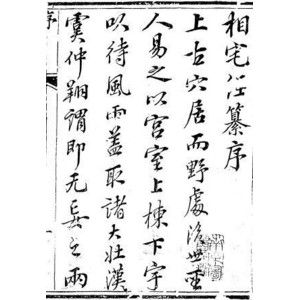 相宅經纂序
上古穴居而野處後世聖
人易之以宮室上棟下宇
以待風雨蓋取諸大壯漢
虞仲翔謂即无妄之兩
序